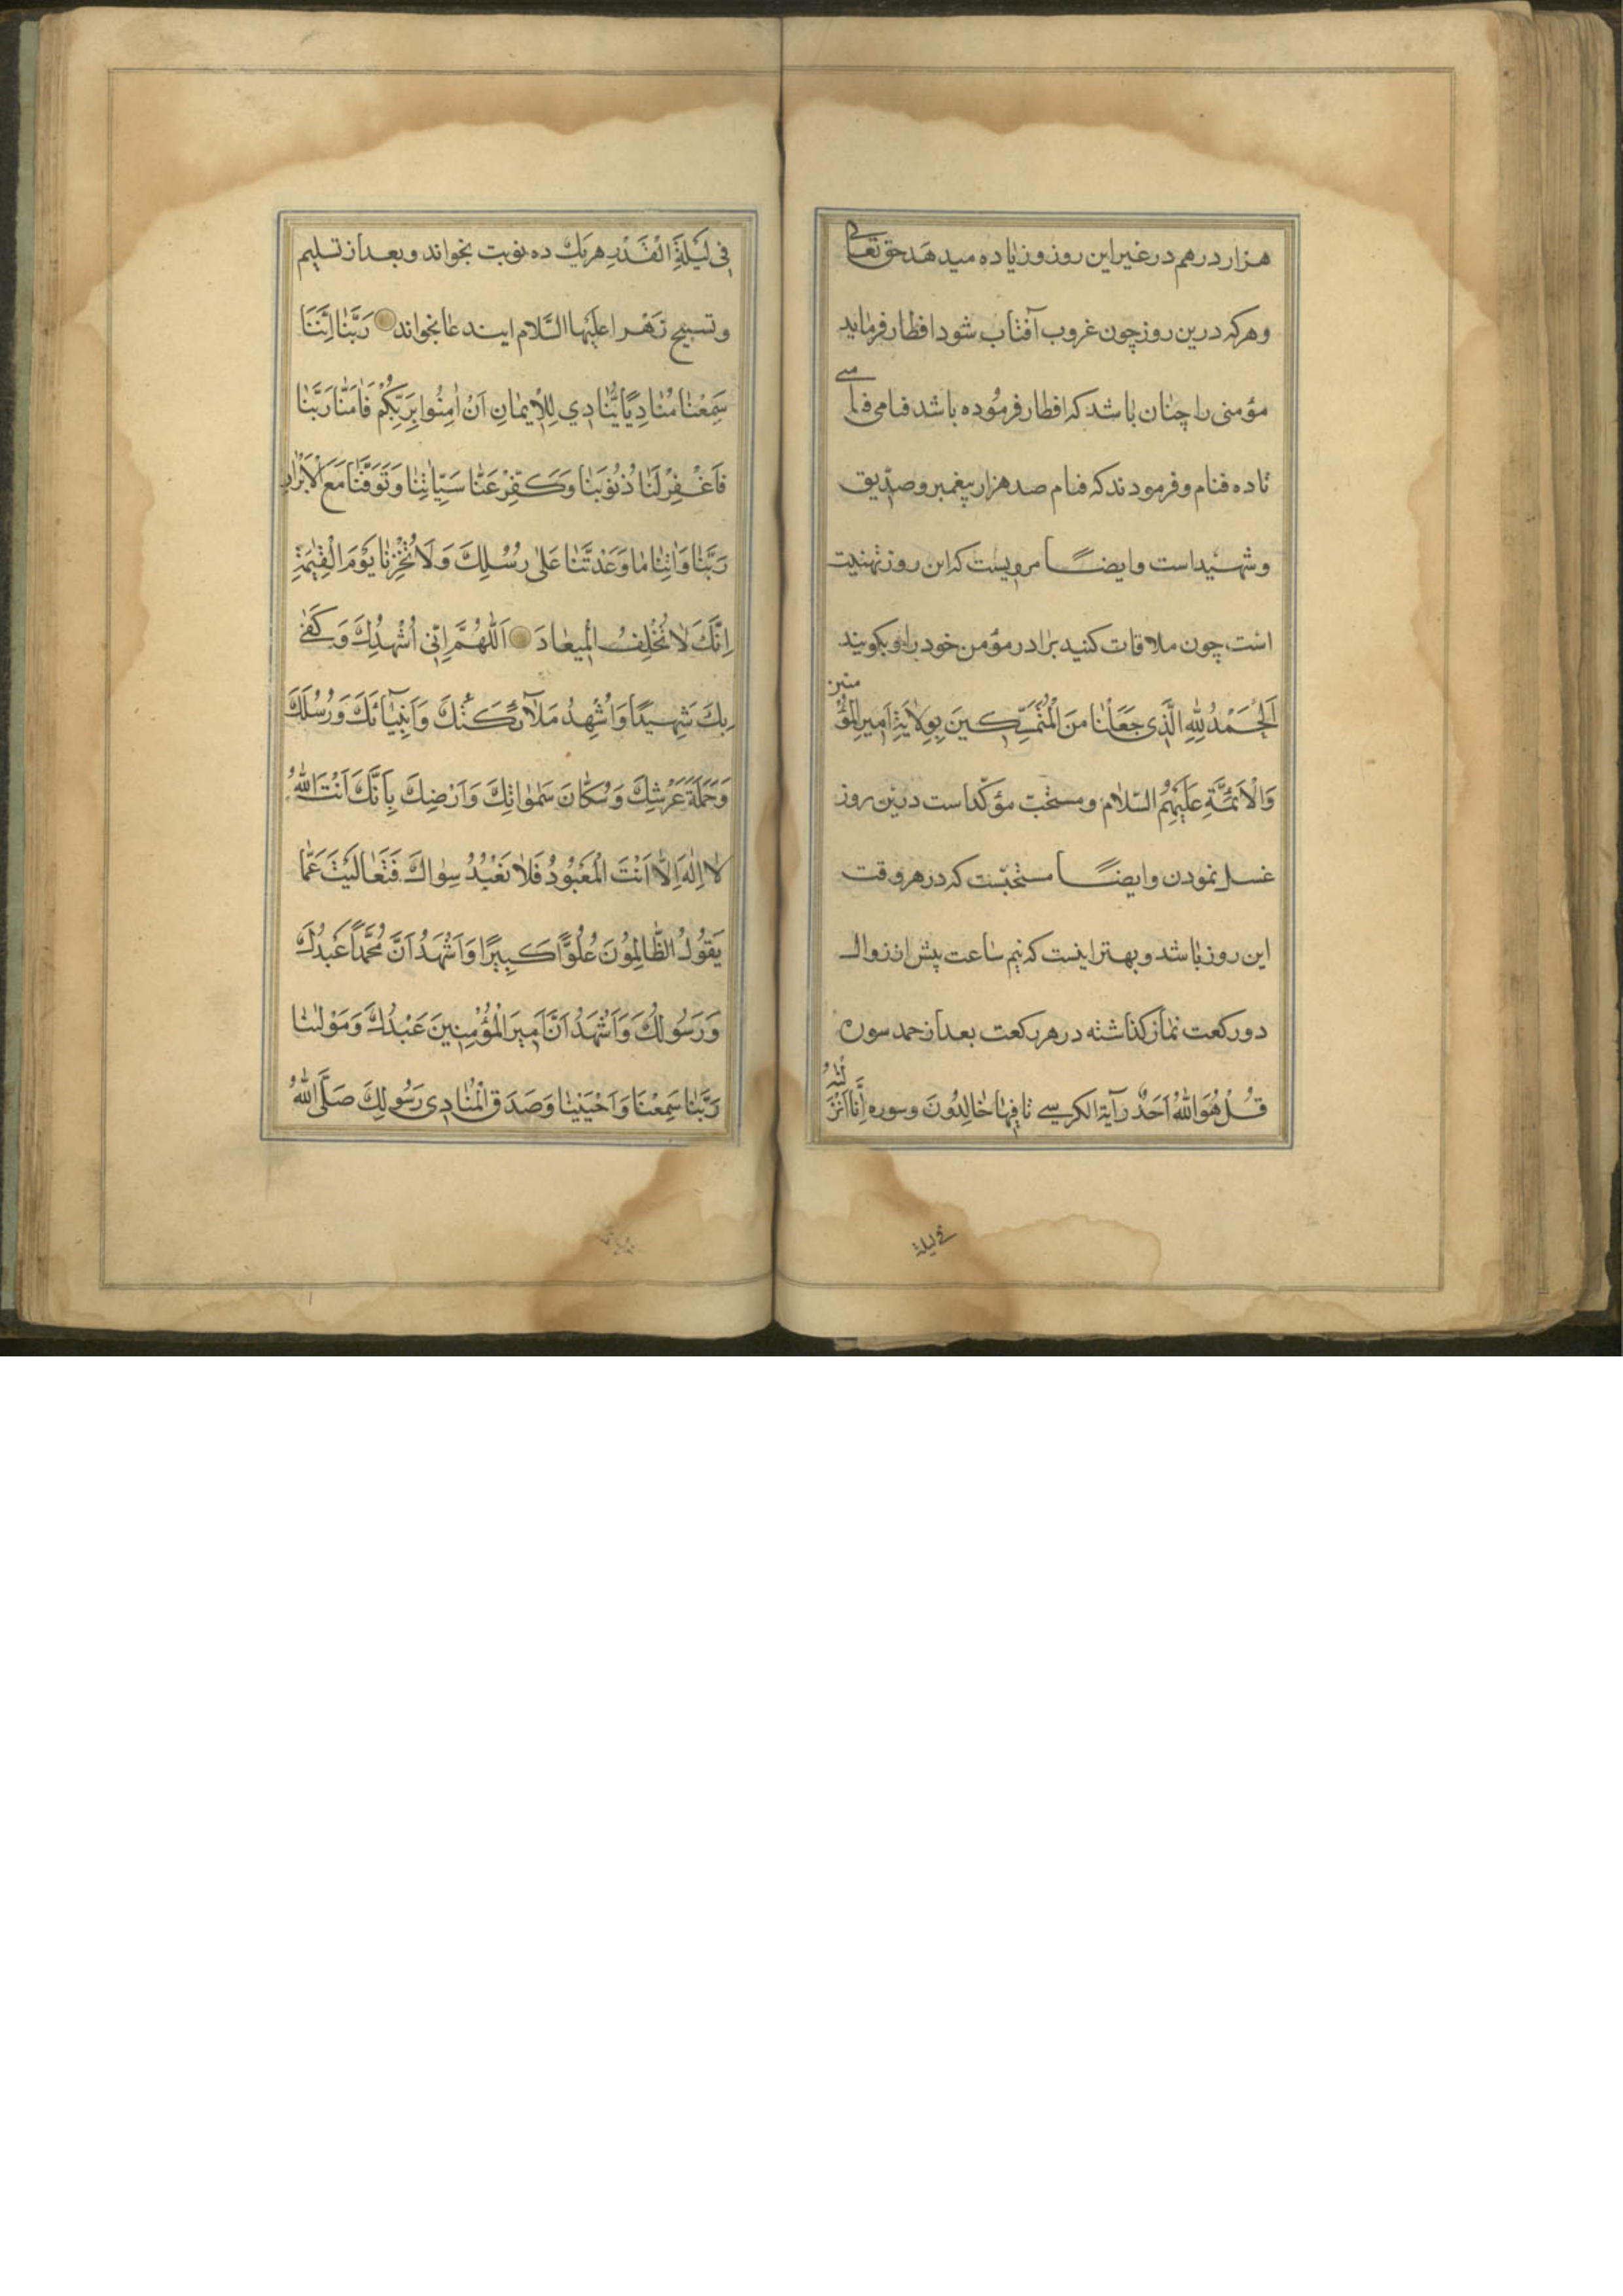 هزار درهم در غیر این روز و زیاده میدهد حق تعالی
و هر که درین روز چون غروب آفتاب شود افطار فرماید
مؤمنی را چنان باشد که افطار فرموده باشد فئامی فئامی
تا ده فنام و فرمودند که فنام صد هزار پیغمبر و صدّیق
و شهیداست و ایضاً مرویست که این روز تهنیت
است چون ملاقات کنید برادر مؤمن خود را بگویند
اَلْحَمْدُ لِلّهِ الَّذِی جَعَلَنٰا مِنَ الْمُتَمَسِّکینَ بِوِلاَیَةِ اَمِیرِ الْمُؤْمنین
وَالْاَئمَّةِ عَلَیْهِمُ السّلام و مستحبّ مؤکّداست درین روز
غسل نمودن و ایضاً مستحبّست که در هر وقت
این روز باشد و بهتر اینست که نیم ساعت پیش از زوال
دو رکعت نماز گذاشته در هر رکعت بعد از حمد سوره
قُلْ هُوَ اللّهُ اَحَدٌ و آیة الکرسی تا فِیهٰا خٰالِدُونَ و سوره اِنّٰا اَنْزَلْنٰهُ
فی لیلة
فِی لَیْلَةِ الْقَدْرِ هر یک ده نوبت بخواند و بعد از تسلیم
و تسبیح زهرا علیها السَّلام ایندعا بخواند رَبَّنٰا اِنَّنَا
سَمِعْنٰا مُنٰادِیًا یُنٰادِی لِلْاِیمٰانِ اَنْ اٰمِنُوا بِرَبِّکُمْ فَاٰمَنّٰا رَبَّنٰا
فَاغْفِرْ لَنٰا ذُنُوبَنٰا وَکَفِّرْ عَنّٰا سَیِّاٰتِنٰا وَتَوَفَّنٰا مَعَ الْاَبْرٰارِ
رَبَّنٰا وَاٰتِنٰا مٰا وَعَدْتَنٰا عَلٰی رُسُلِکَ وَلَا تُخْزِنٰا یَوْمَ الْقِیٰمَةِ
اِنَّکَ لٰا تُخْلِفُ الْمِیعٰادَ اَللّهُمَّ اِنّی اُشْهِدُکَ وَکَفٰی
بِکَ شَهِیدًا وَاُشْهِدُ مَلآئِکَتَکَ وَاَنْبِیٰآئَکَ وَرُسُلَکَ
وَحَمَلَةَ عَرْشِکَ وَسُکّٰانَ سَمٰوٰاتِکَ وَاَرْضِکَ بِاَنَّکَ اَنْتَ اللّهُ
لٰا اِلٰهَ اِلّٰا اَنْتَ الْمَعْبُودُ فَلاٰ نَعْبُدُ سِوٰاکَ فَتَعٰالَیْتَ عَمّٰا
یَقُولُ الظّٰالِمُونَ عُلُوًّا کَبِیرًا وَاَشْهَدُ اَنَّ مُحَمَّدًا عَبْدُکَ
وَرَسُولُکَ وَاَشْهَدُ اَنَّ اَمِیرَ الْمُؤْمِنِینَ عَبْدُکَ وَمَوْلٰینٰا
رَبَّنٰا سَمِعْنَا وَاَجَبْنٰا وَصَدَّقَ الْمُنٰادِی رَسُولِکَ صَلَّی اللّهُ